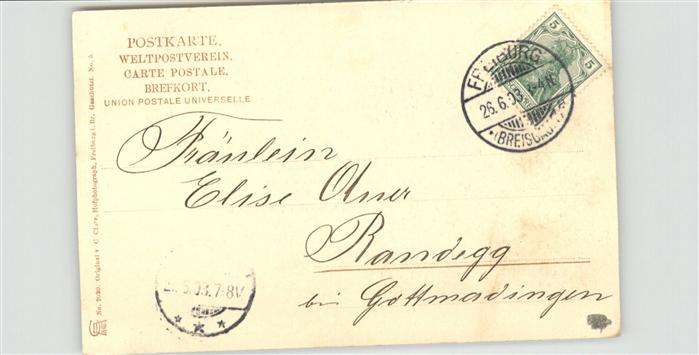 POSTKARTE.
WELTPOSTVEREIN.
CARTE POSTALE.
BREFKORT.
UNION POSTALE UNIVERSELLE
5
5
FREIBURG
26.6.03.
(BREISGAU)
Fräulein
Elise Auer
Randegg
bei Gottmadingen
.03.7-8V
Hofphotograph, Freiburg i. Br. Geschützt. No. 5